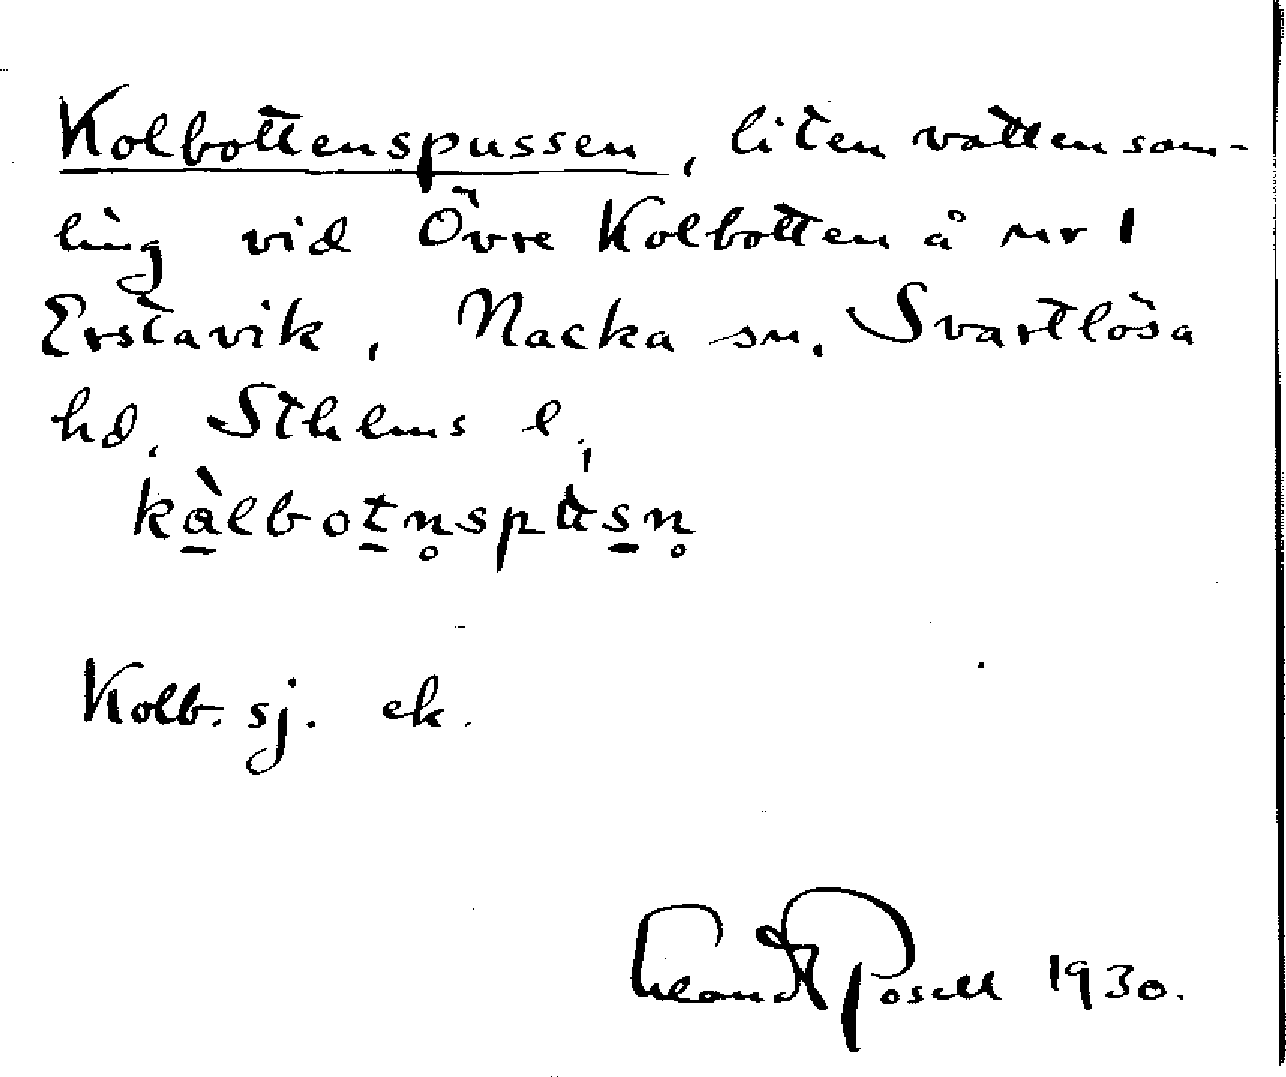 Kolbottenspussen, liten vattensam-
ling vid Övre Kolbotten å nr 1
Erstavik, Nacka sn, Svartlösa
hd, Sthlms l.
kà̠lbot̠n̥spu̍s̠n̥
Kolb. sj. ek.
Erland Rosell 1930.